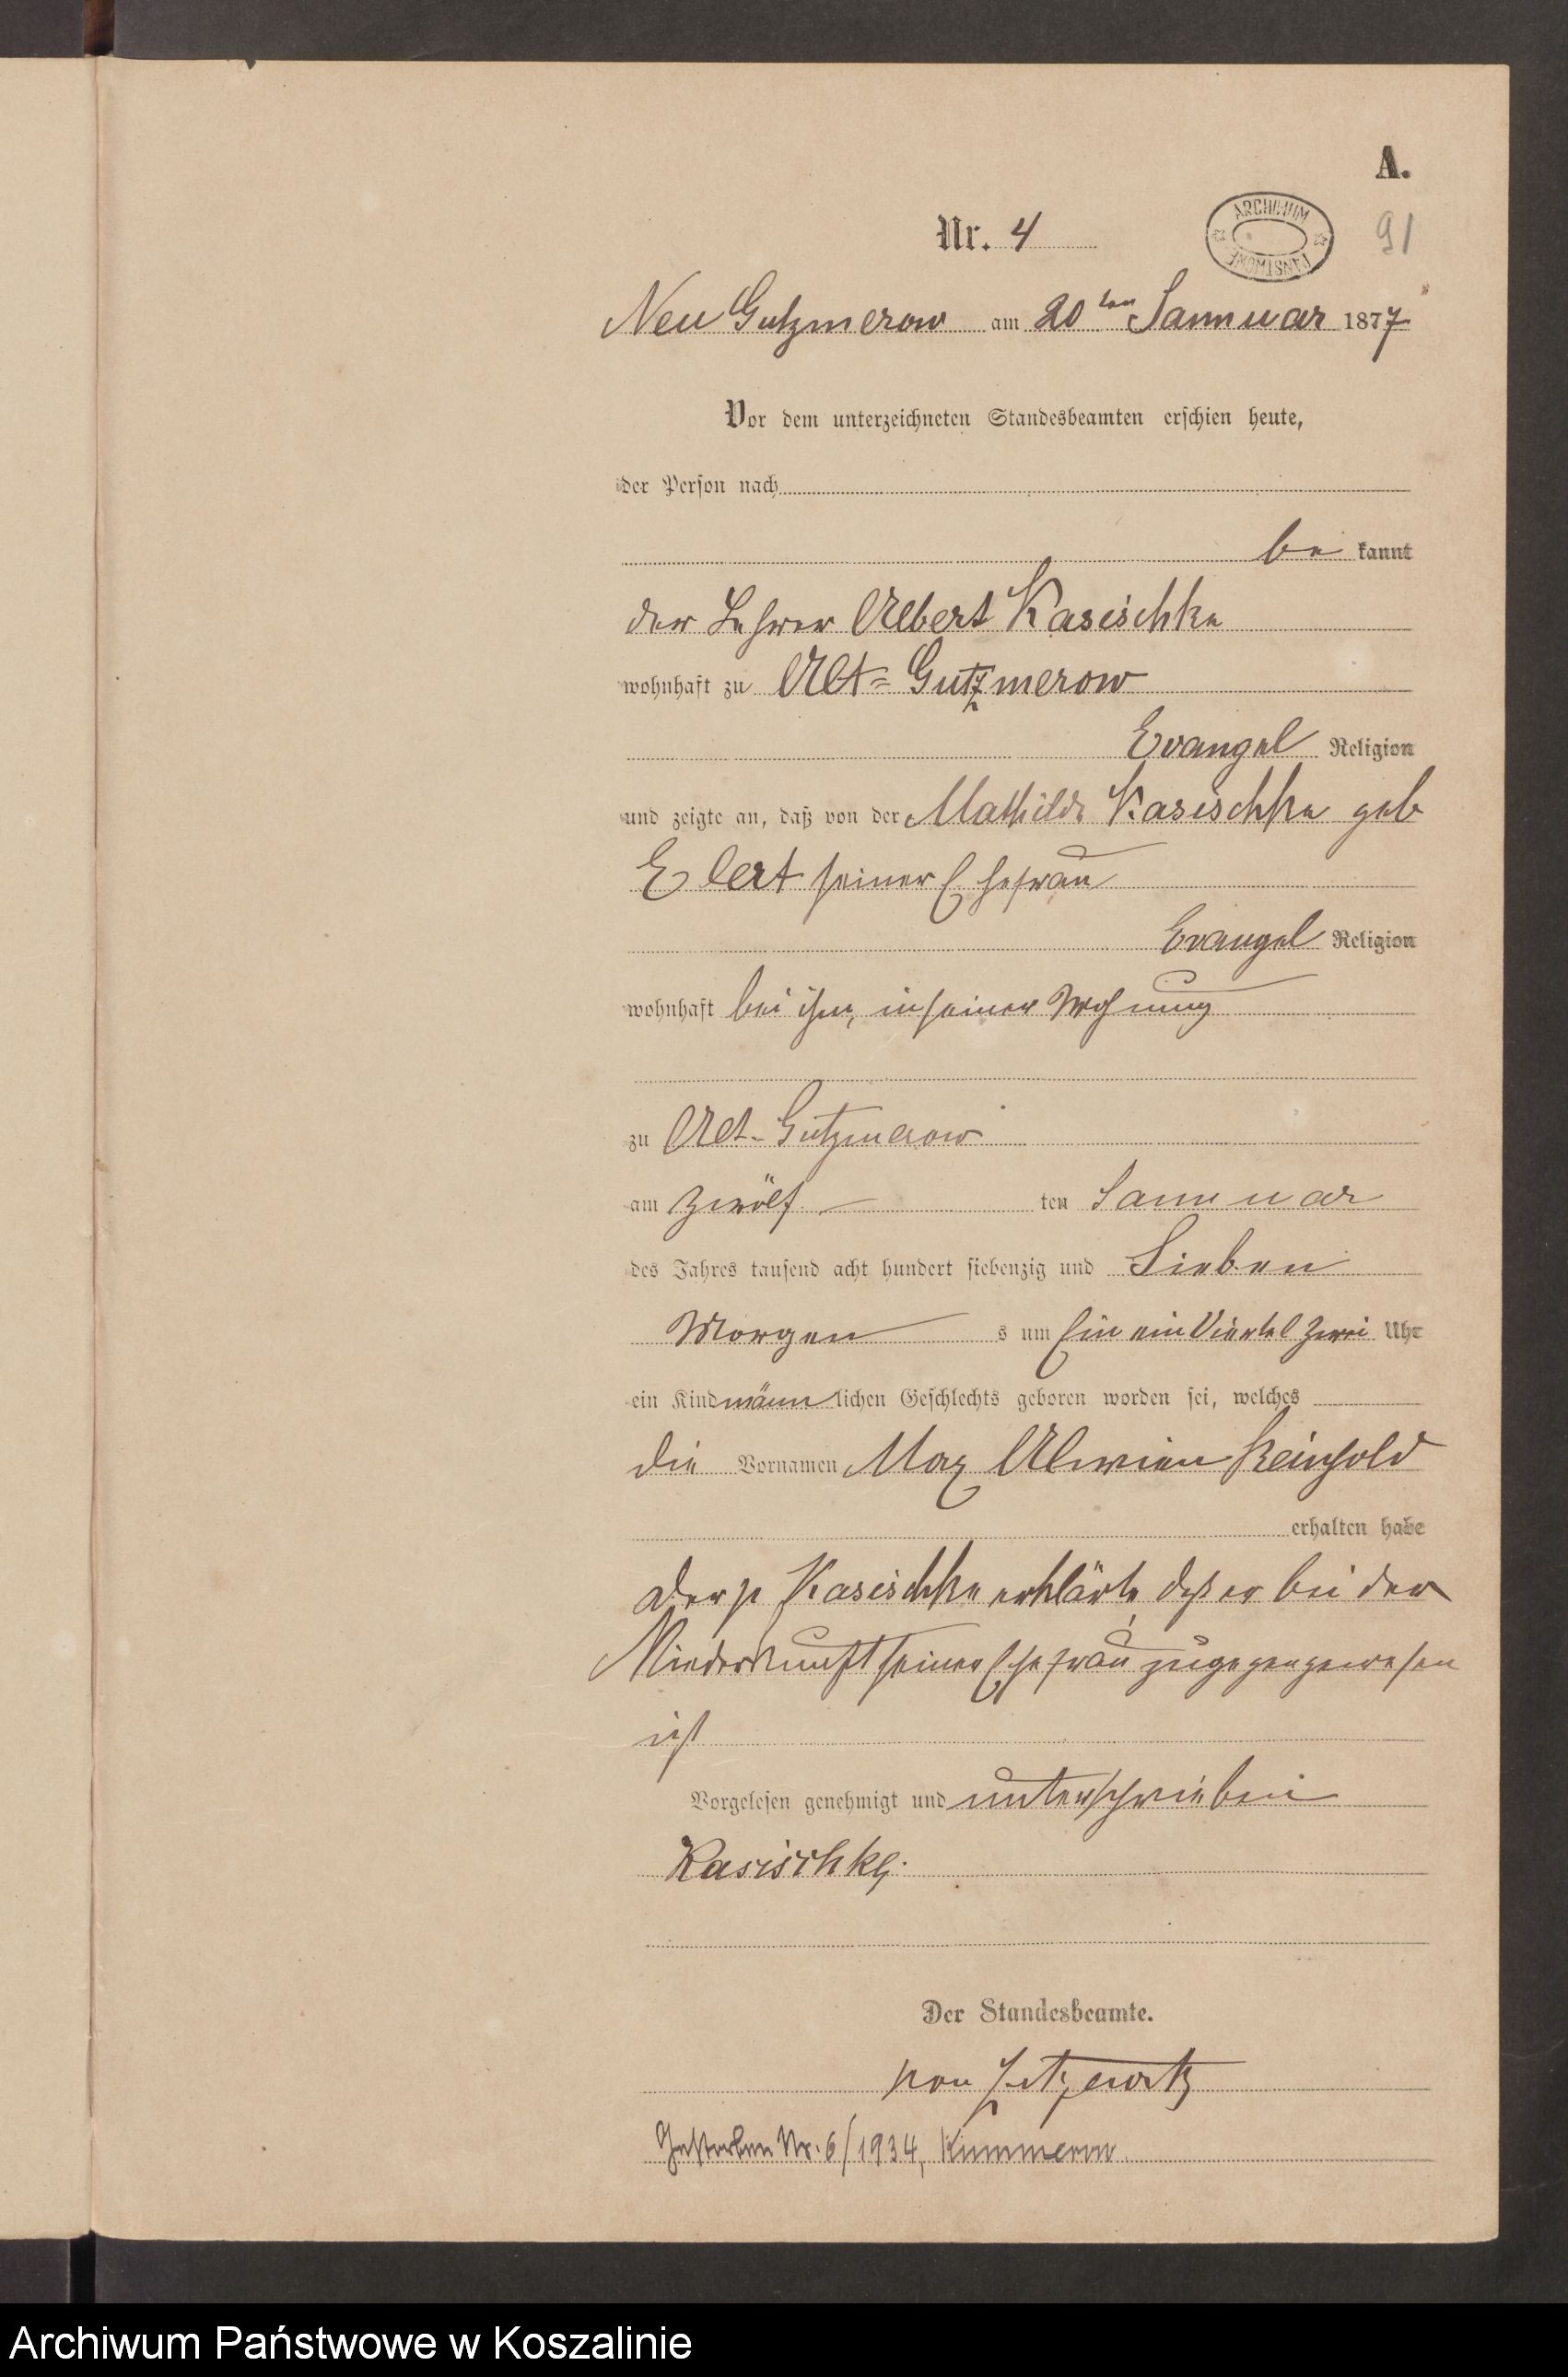 A.
Nr. 4
ARCHIWUM PAŃSTWOWE
91
Neu Gutzmerow am 20ten Jannuar 1877
Vor dem unterzeichneten Standesbeamten erschien heute,
der Person nach
be kannt
der Lehrer Albert Kasischke
wohnhaft zu Alt=Gutzmerow
Evangel Religion
und zeigte an, daß von der Mathilde Kasischke geb
Elert seiner Ehefrau
Evangel Religion
wohnhaft bei ihm, in seiner Wohnung
zu Alt-Gutzmerow
am zwölf ten Jannuar
des Jahres tausend acht hundert siebenzig und Sieben
Morgen s um Ein ein Viertel zwei Uhr
ein Kind männlichen Geschlechts geboren worden sei, welches
die Vornamen Max Alwien Reinhold
erhalten habe
Der p Kasischke erklärte, daß er bei der
Niederkunft seiner Ehefrau zugegen gewesen
ist
Vorgelesen genehmigt und unterschrieben
Kasischke.
Der Standesbeamte.
von Zitzewitz
Gestorben Nr. 6/1934, Kummerow.
Archiwum Państwowe w Koszalinie